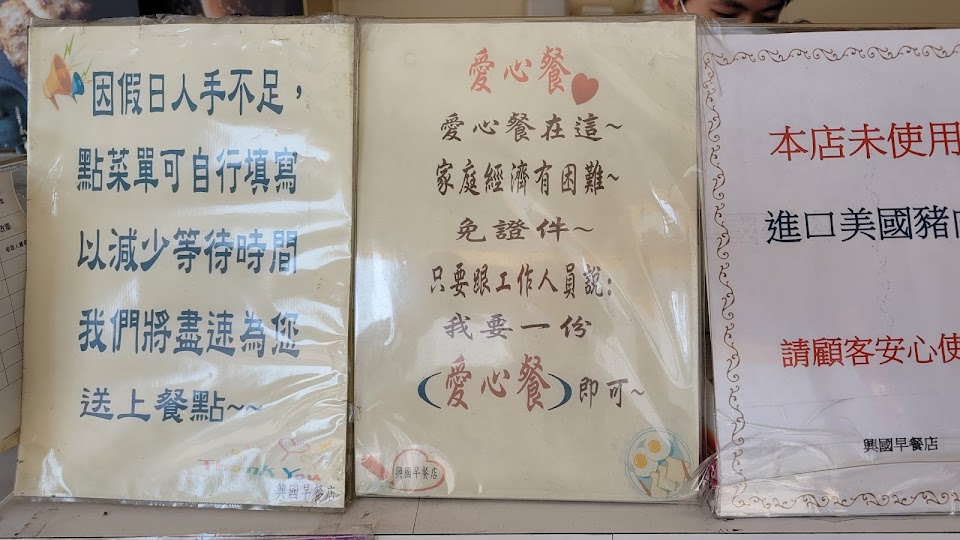 因假日人手不足，
點菜單可自行填寫
以減少等待時間
我們將盡速為您
送上餐點~~
Thank You
興國早餐店
愛心餐
愛心餐在這~
家庭經濟有困難~
免證件~
只要跟工作人員說:
我要一份
(愛心餐)即可~
興國早餐店
本店未使用
進口美國豬肉
請顧客安心使
興國早餐店